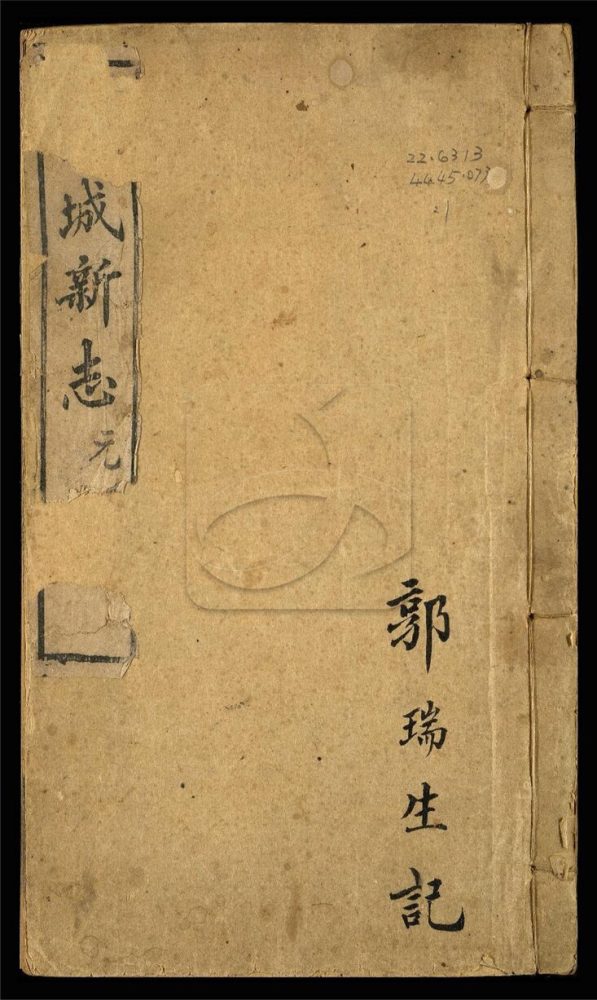 22.6313
4445.073
21
郭瑞生記
城新志元